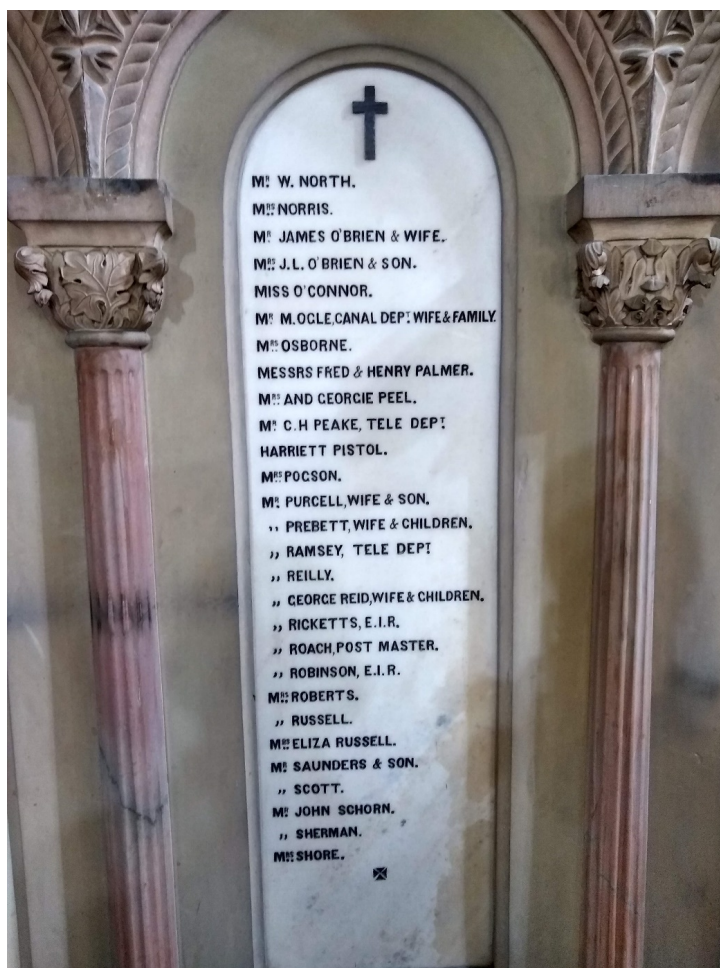 Mr W. NORTH.
Mrs NORRIS.
Mr JAMES O'BRIEN & WIFE.
Mrs J.L. O'BRIEN & SON.
MISS O'CONNOR.
Mr M.OGLE,CANAL DEPT WIFE & FAMILY.
Mrs OSBORNE.
MESSRS FRED & HENRY PALMER.
Mrs AND GEORGIE PEEL.
Mr C.H PEAKE, TELE DEPT
HARRIETT PISTOL.
Mrs POGSON.
Mr PURCELL,WIFE & SON.
,, PREBETT,WIFE & CHILDREN.
,, RAMSEY, TELE DEPT
,, REILLY.
,, GEORGE REID,WIFE & CHILDREN.
,, RICKETTS, E.I.R.
,, ROACH,POST MASTER.
,, ROBINSON, E.I.R.
Mrs ROBERTS.
,, RUSSELL.
Mrs ELIZA RUSSELL.
Mr SAUNDERS & SON.
,, SCOTT.
Mr JOHN SCHORN.
,, SHERMAN.
Mrs SHORE.